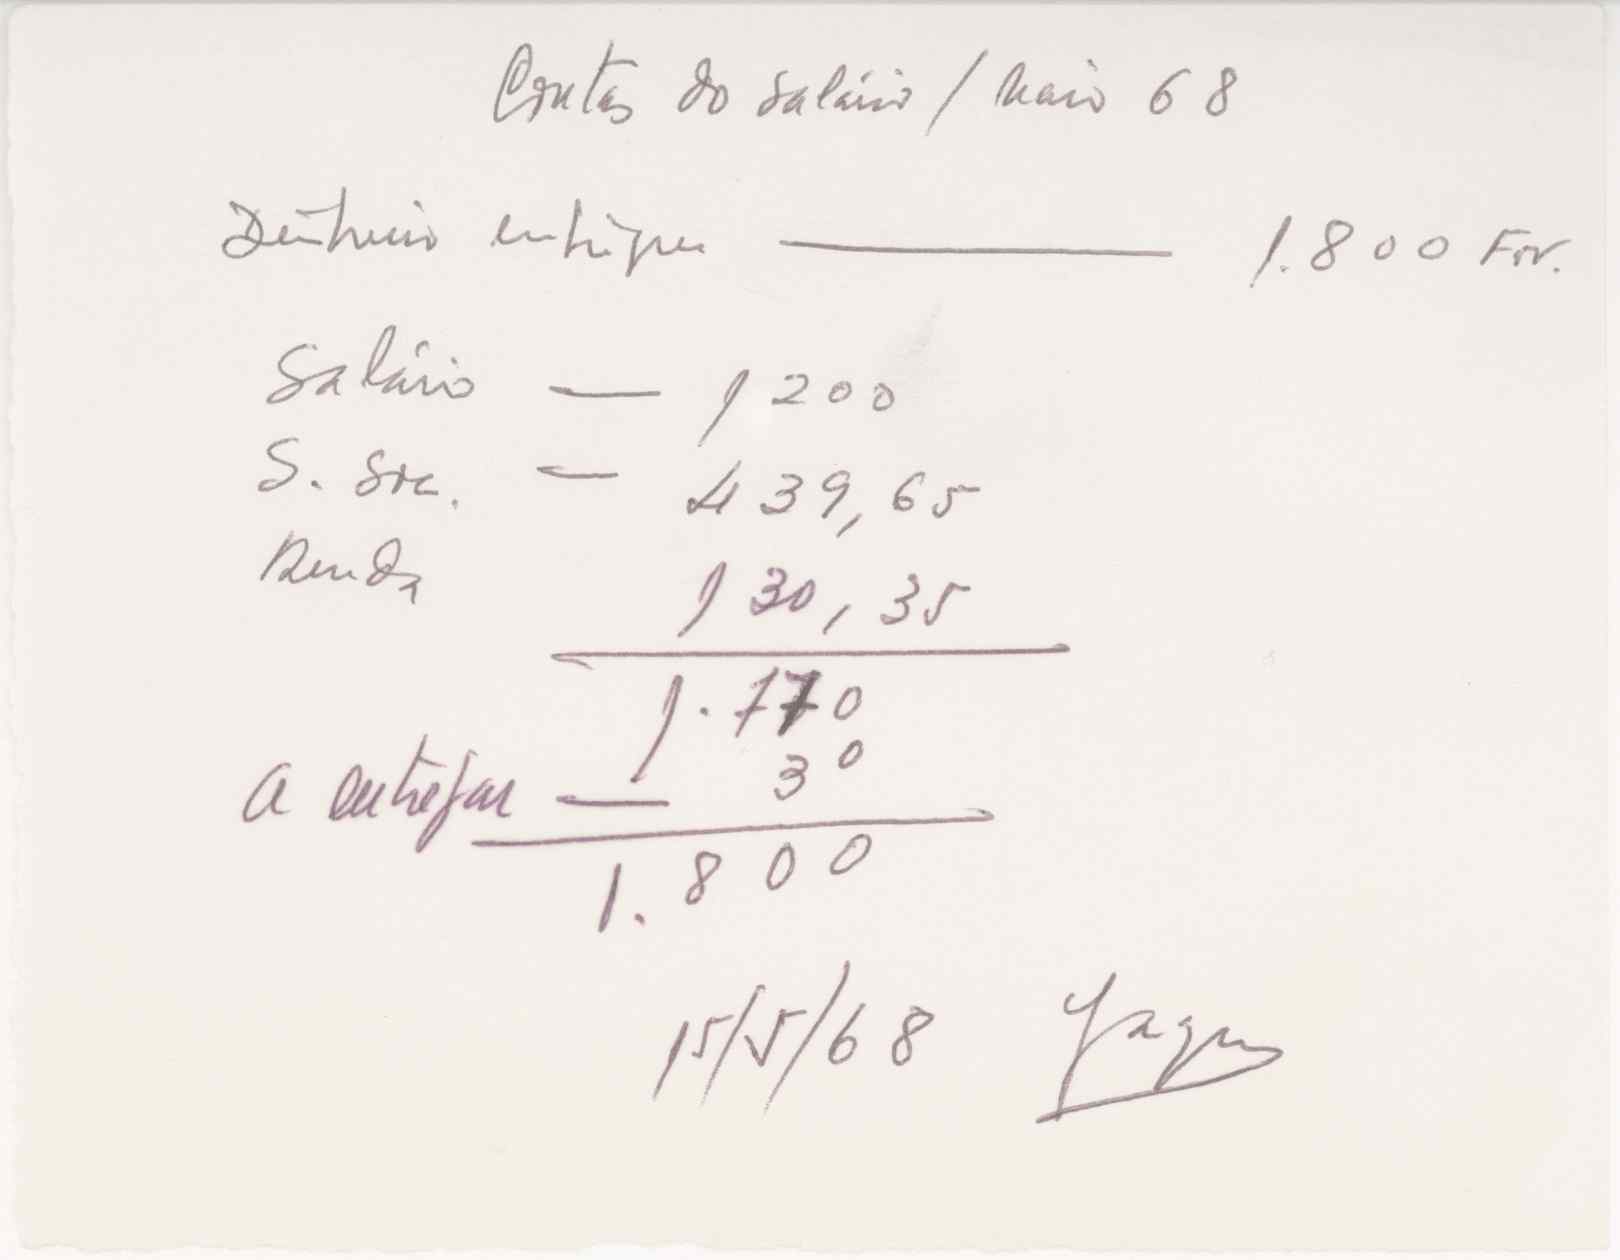 Contas do salário / Maio 68
Dinheiro entregue — 1.800 For.
Salário — 1200
S. Soc. — 439,65
Renda 130,35
1.770
a entregar — 30
1.800
15/5/68